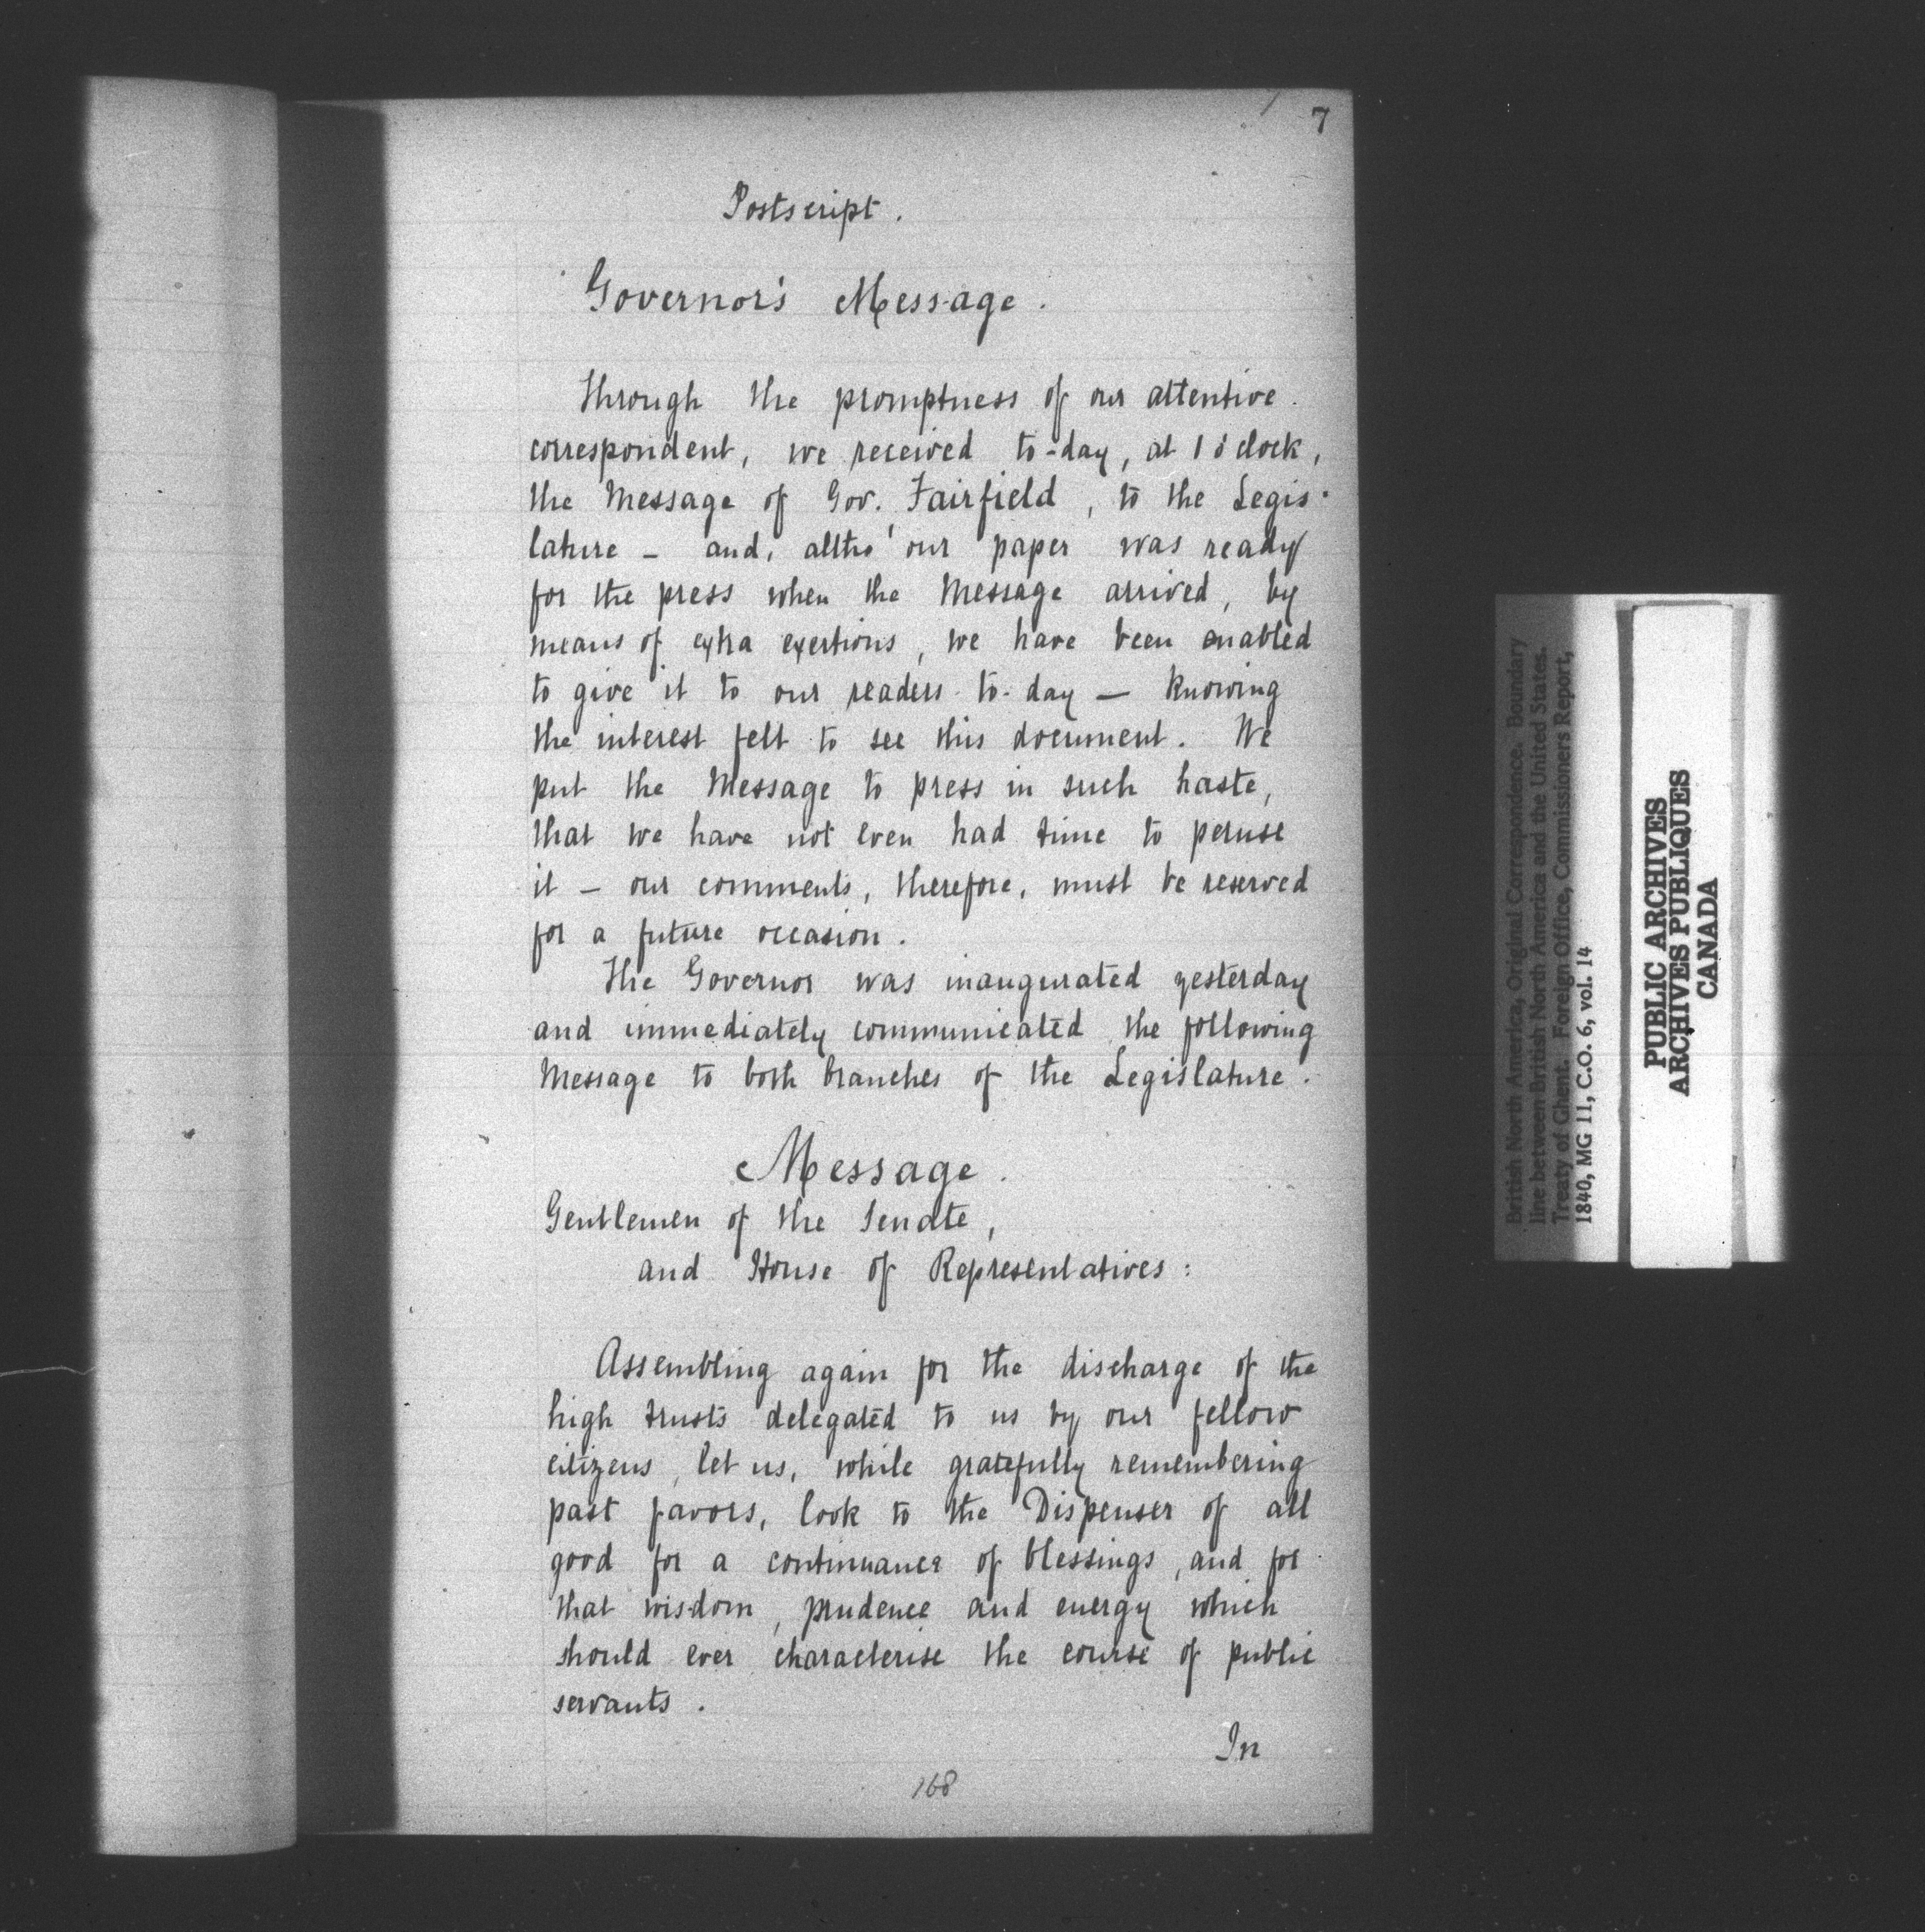 7
Postscript.
Governor's Message.
Through the promptness of our attentive
correspondent, we received to-day, at 1 o'clock,
the Message of Gov. Fairfield, to the Legis-
lature – and, altho' our paper was ready
for the press when the Message arrived, by
means of extra exertions, we have been enabled
to give it to our readers to-day — knowing
the interest felt to see this document. We
put the Message to press in such haste,
that we have not even had time to peruse
it – our comments, therefore, must be reserved
for a future occasion.
The Governor was inaugurated yesterday
and immediately communicated the following
Message to both branches of the Legislature.
Message.
Gentlemen of the Senate,
and House of Representatives:
Assembling again for the discharge of the
high trusts delegated to us by our fellow
citizens, let us, while gratefully remembering
past favors, look to the Dispenser of all
good for a continuance of blessings, and for
that wisdom, prudence and energy which
should ever characterise the course of public
servants.
In
168
British North America, Original Correspondence. Boundary
line between British North America and the United States.
Treaty of Ghent. Foreign Office, Commissioners Report,
1840, MG 11, C.O. 6, vol. 14
PUBLIC ARCHIVES
ARCHIVES PUBLIQUES
CANADA